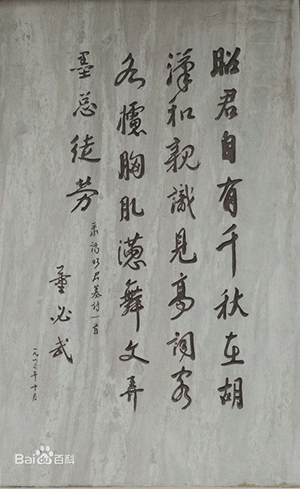 昭君自有千秋在胡
漢和親識見高詞客
各攄胸肊懣舞文弄
墨总徒劳
謁昭君墓詩一首
董必武
一九六三年十月
Bai百科